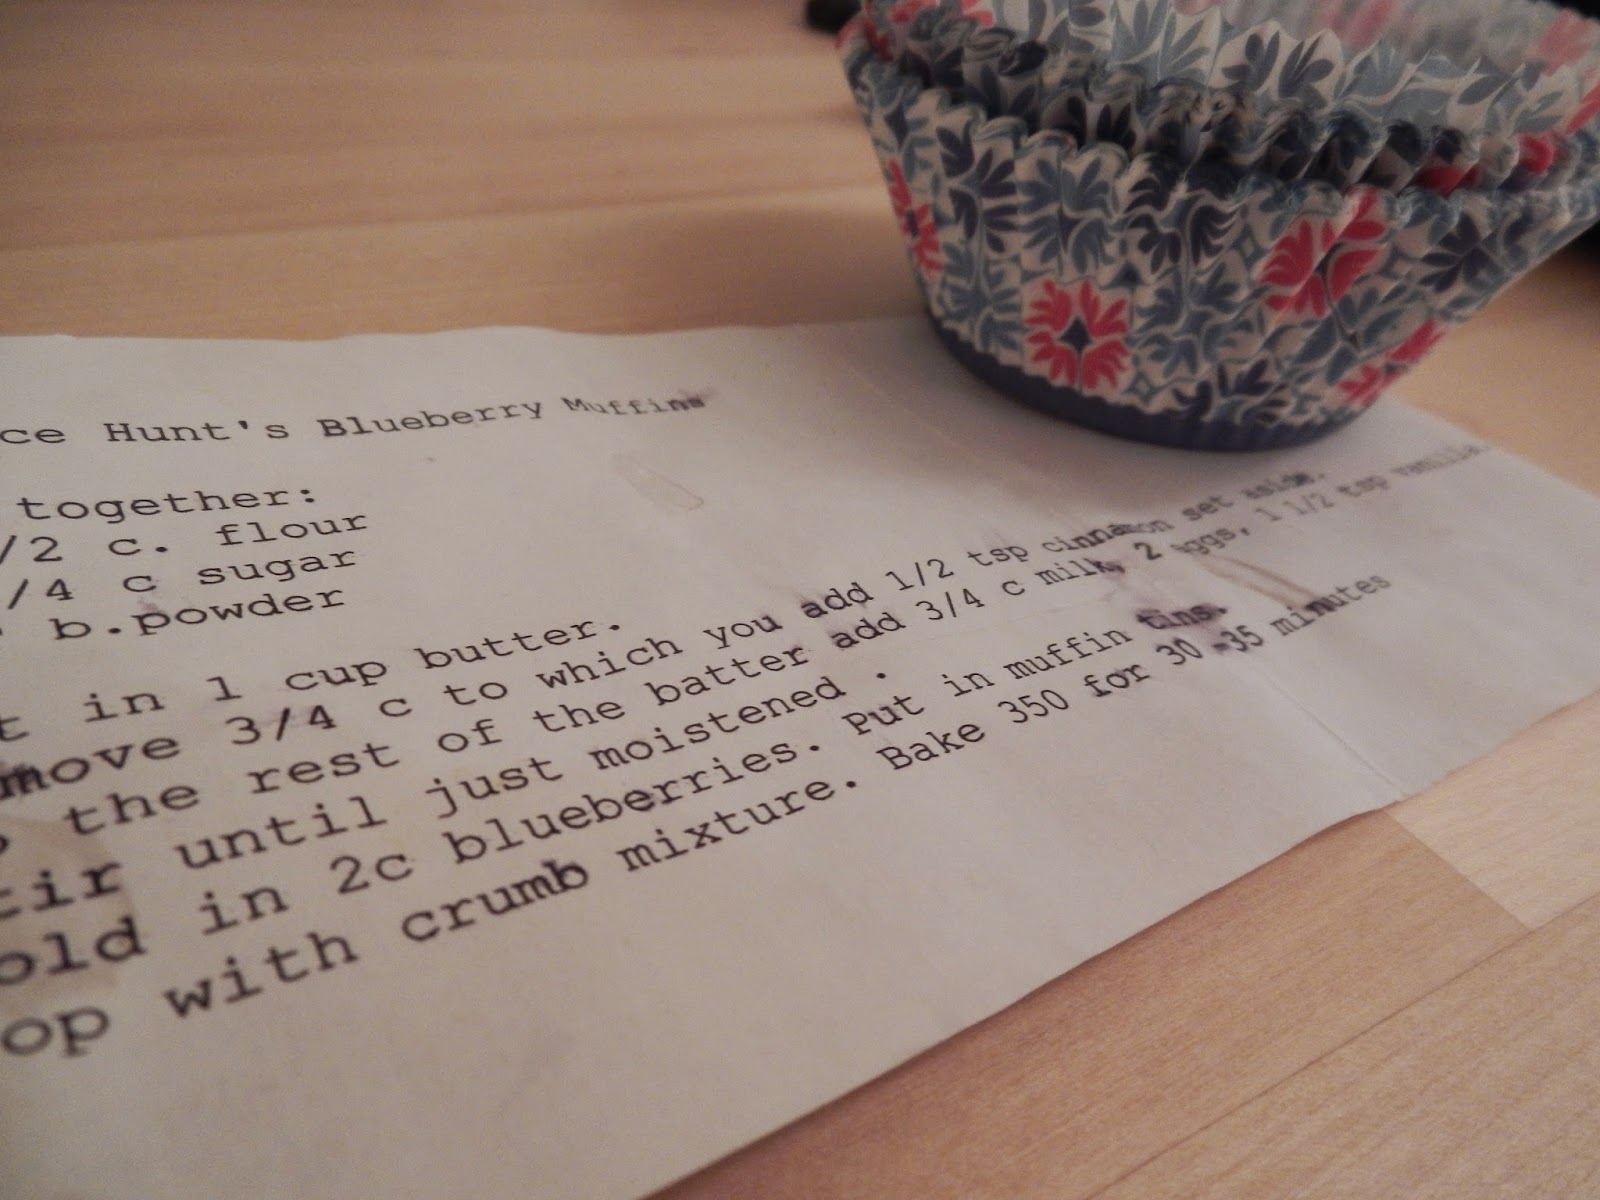 ce Hunt's Blueberry Muffins
together:
/2 c. flour
/4 c sugar
b.powder
t in 1 cup butter.
move 3/4 c to which you add 1/2 tsp cinnamon set aside.
the rest of the batter add 3/4 c milk, 2 eggs, 1 1/2 tsp vanilla.
tir until just moistened .
old in 2c blueberries. Put in muffin tins.
op with crumb mixture. Bake 350 for 30 -35 minutes